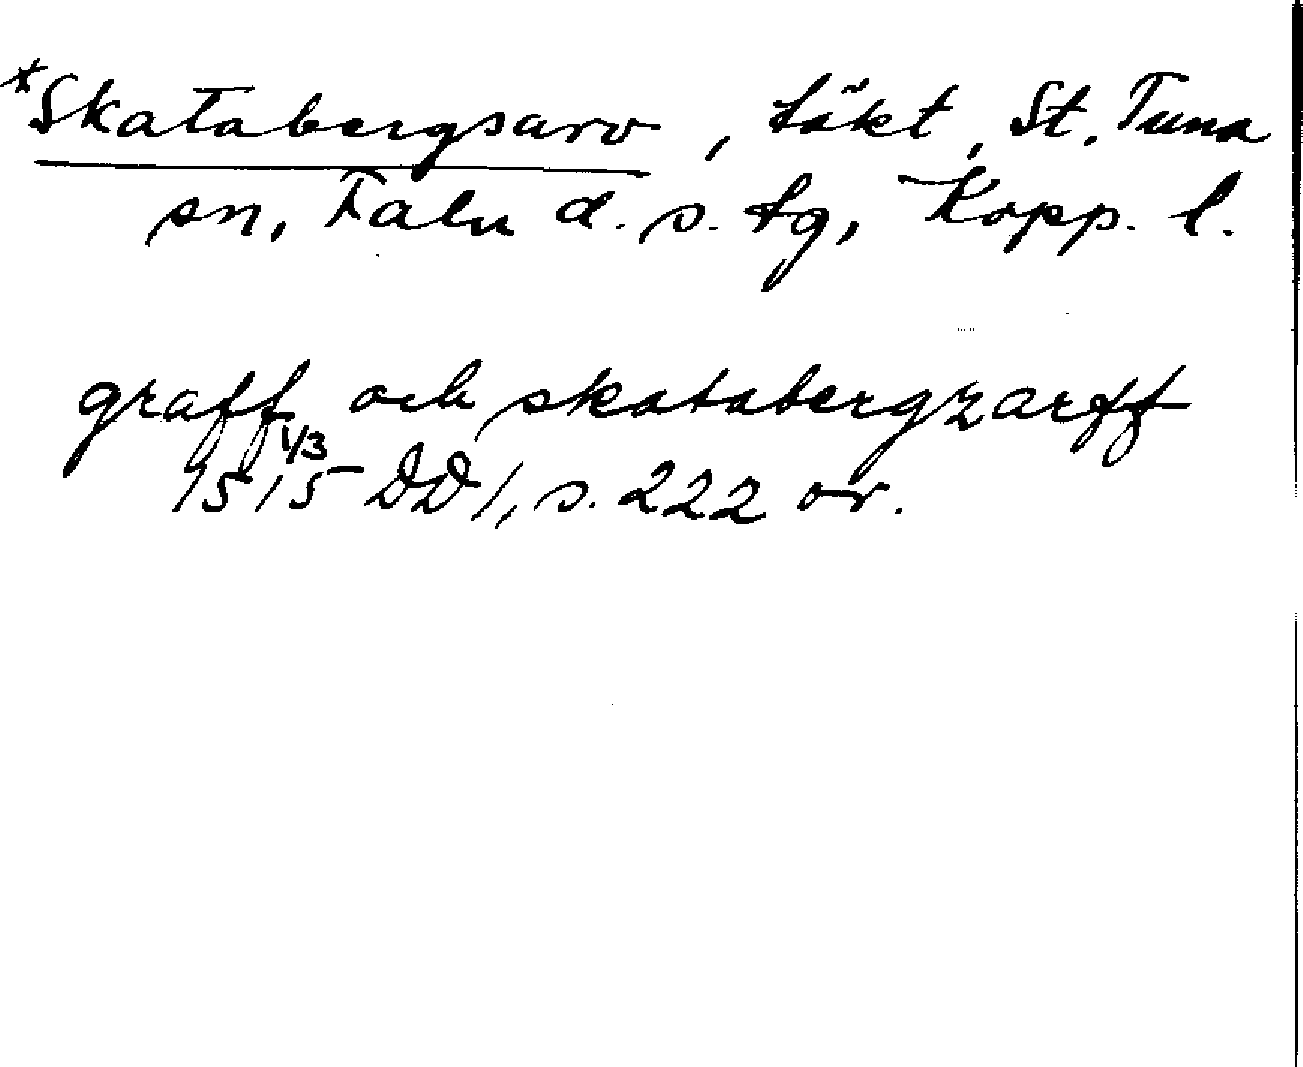 *Skatabergsarv, täkt, St. Tuna
sn, Falu d. s. tg, Kopp. l.
graff och skatabergzarff
1515 1/3 DD 1, s. 222 or.